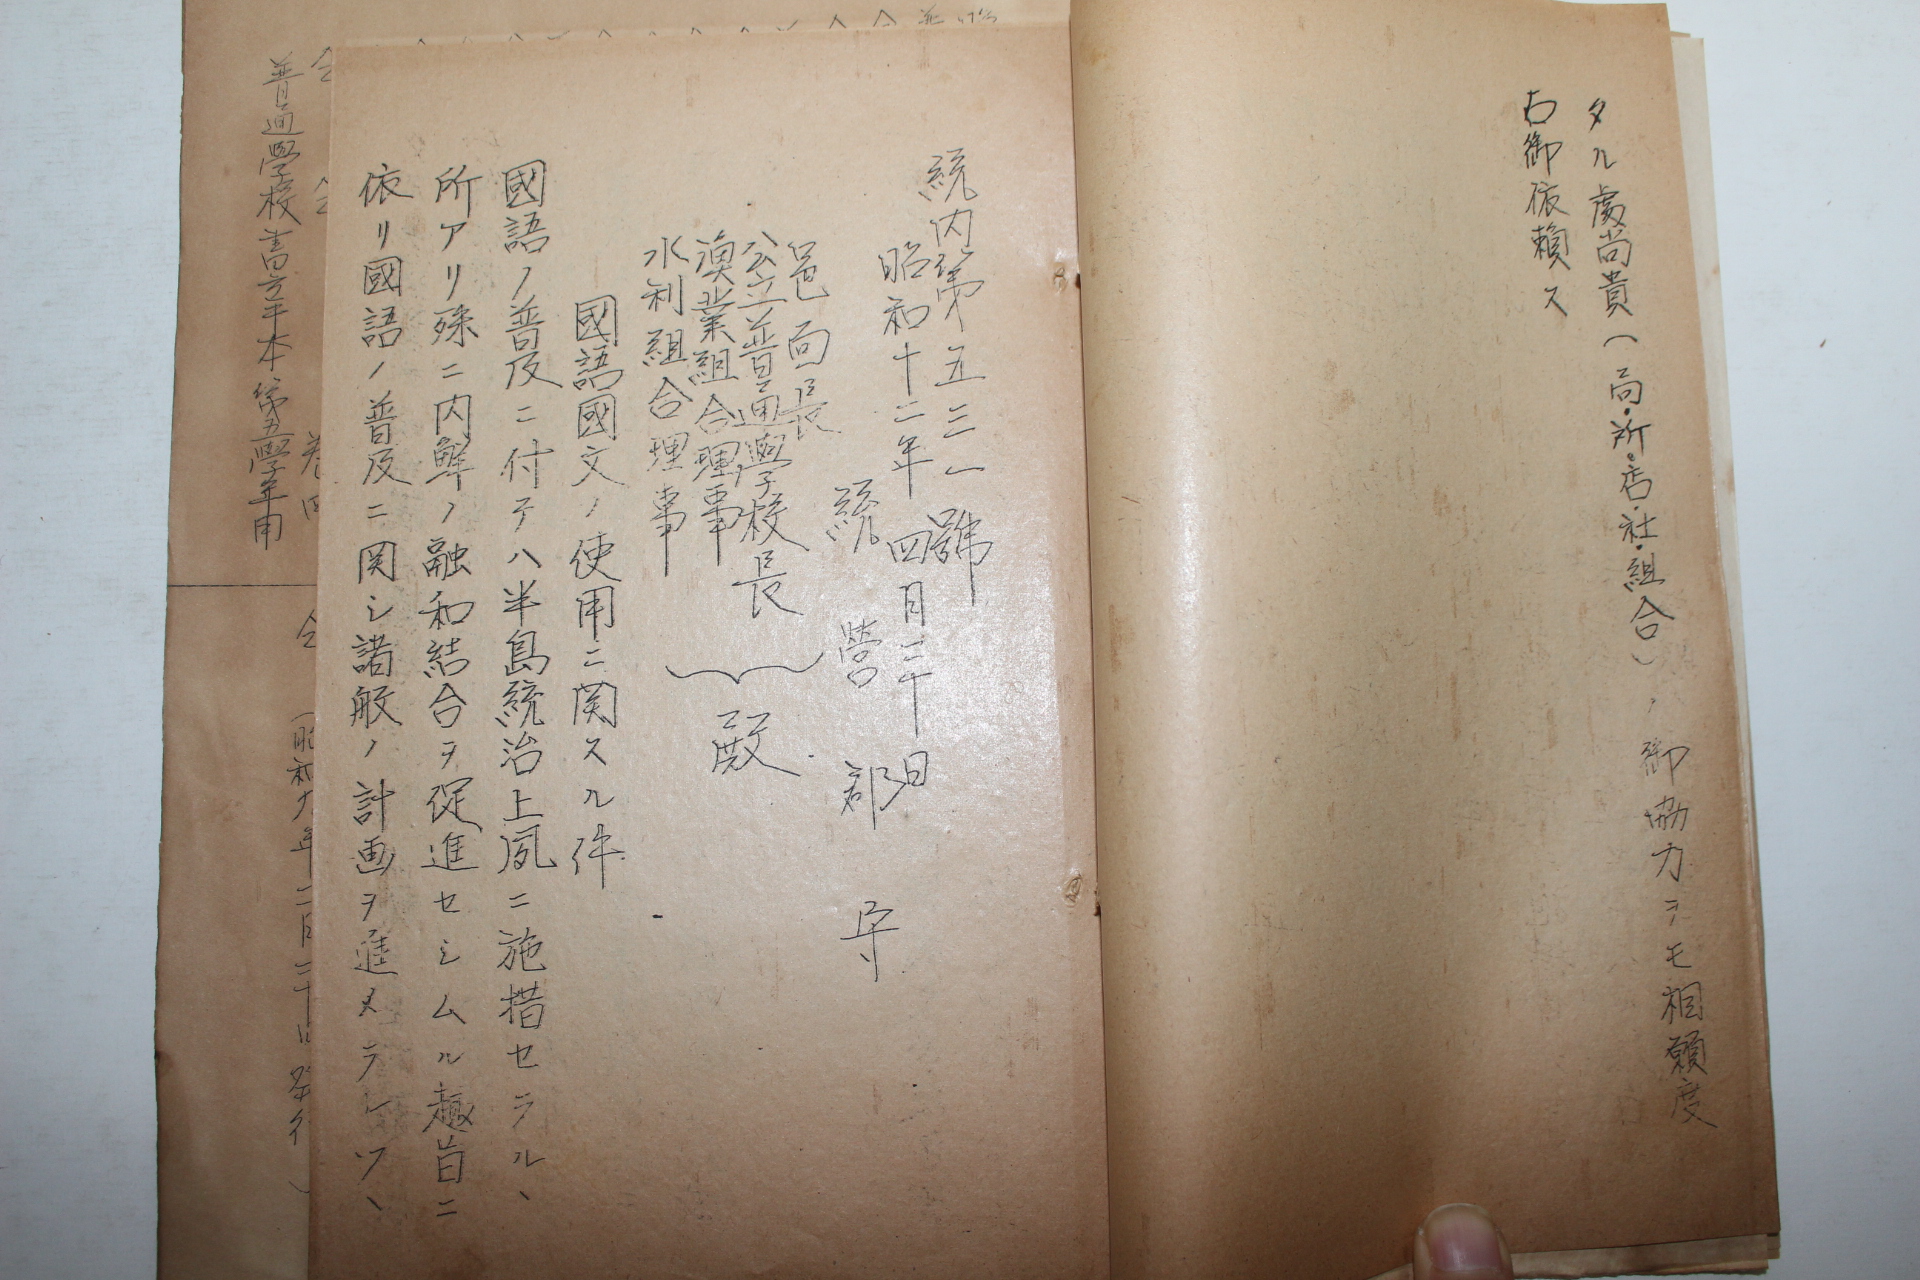 タル處尚貴（局・所・店・社・組合）ノ御協力ヲモ相願度
右御依頼ス
統内第五三一號
昭和十二年四月三十日
統營郡守
邑面長
公立普通學校長
漁業組合理事
水利組合理事
殿
國語國文ノ使用ニ関スル件
國語ノ普及ニ付テハ半島統治上夙ニ施措セラル、
所アリ殊ニ内鮮ノ融和結合ヲ促進セシムル趣旨ニ
依リ國語ノ普及ニ関シ諸般ノ計画ヲ進メラレツヽ
仝 仝 巻四 仝（昭和九年二月二十日発行）
普通學校書方手本第五學年用